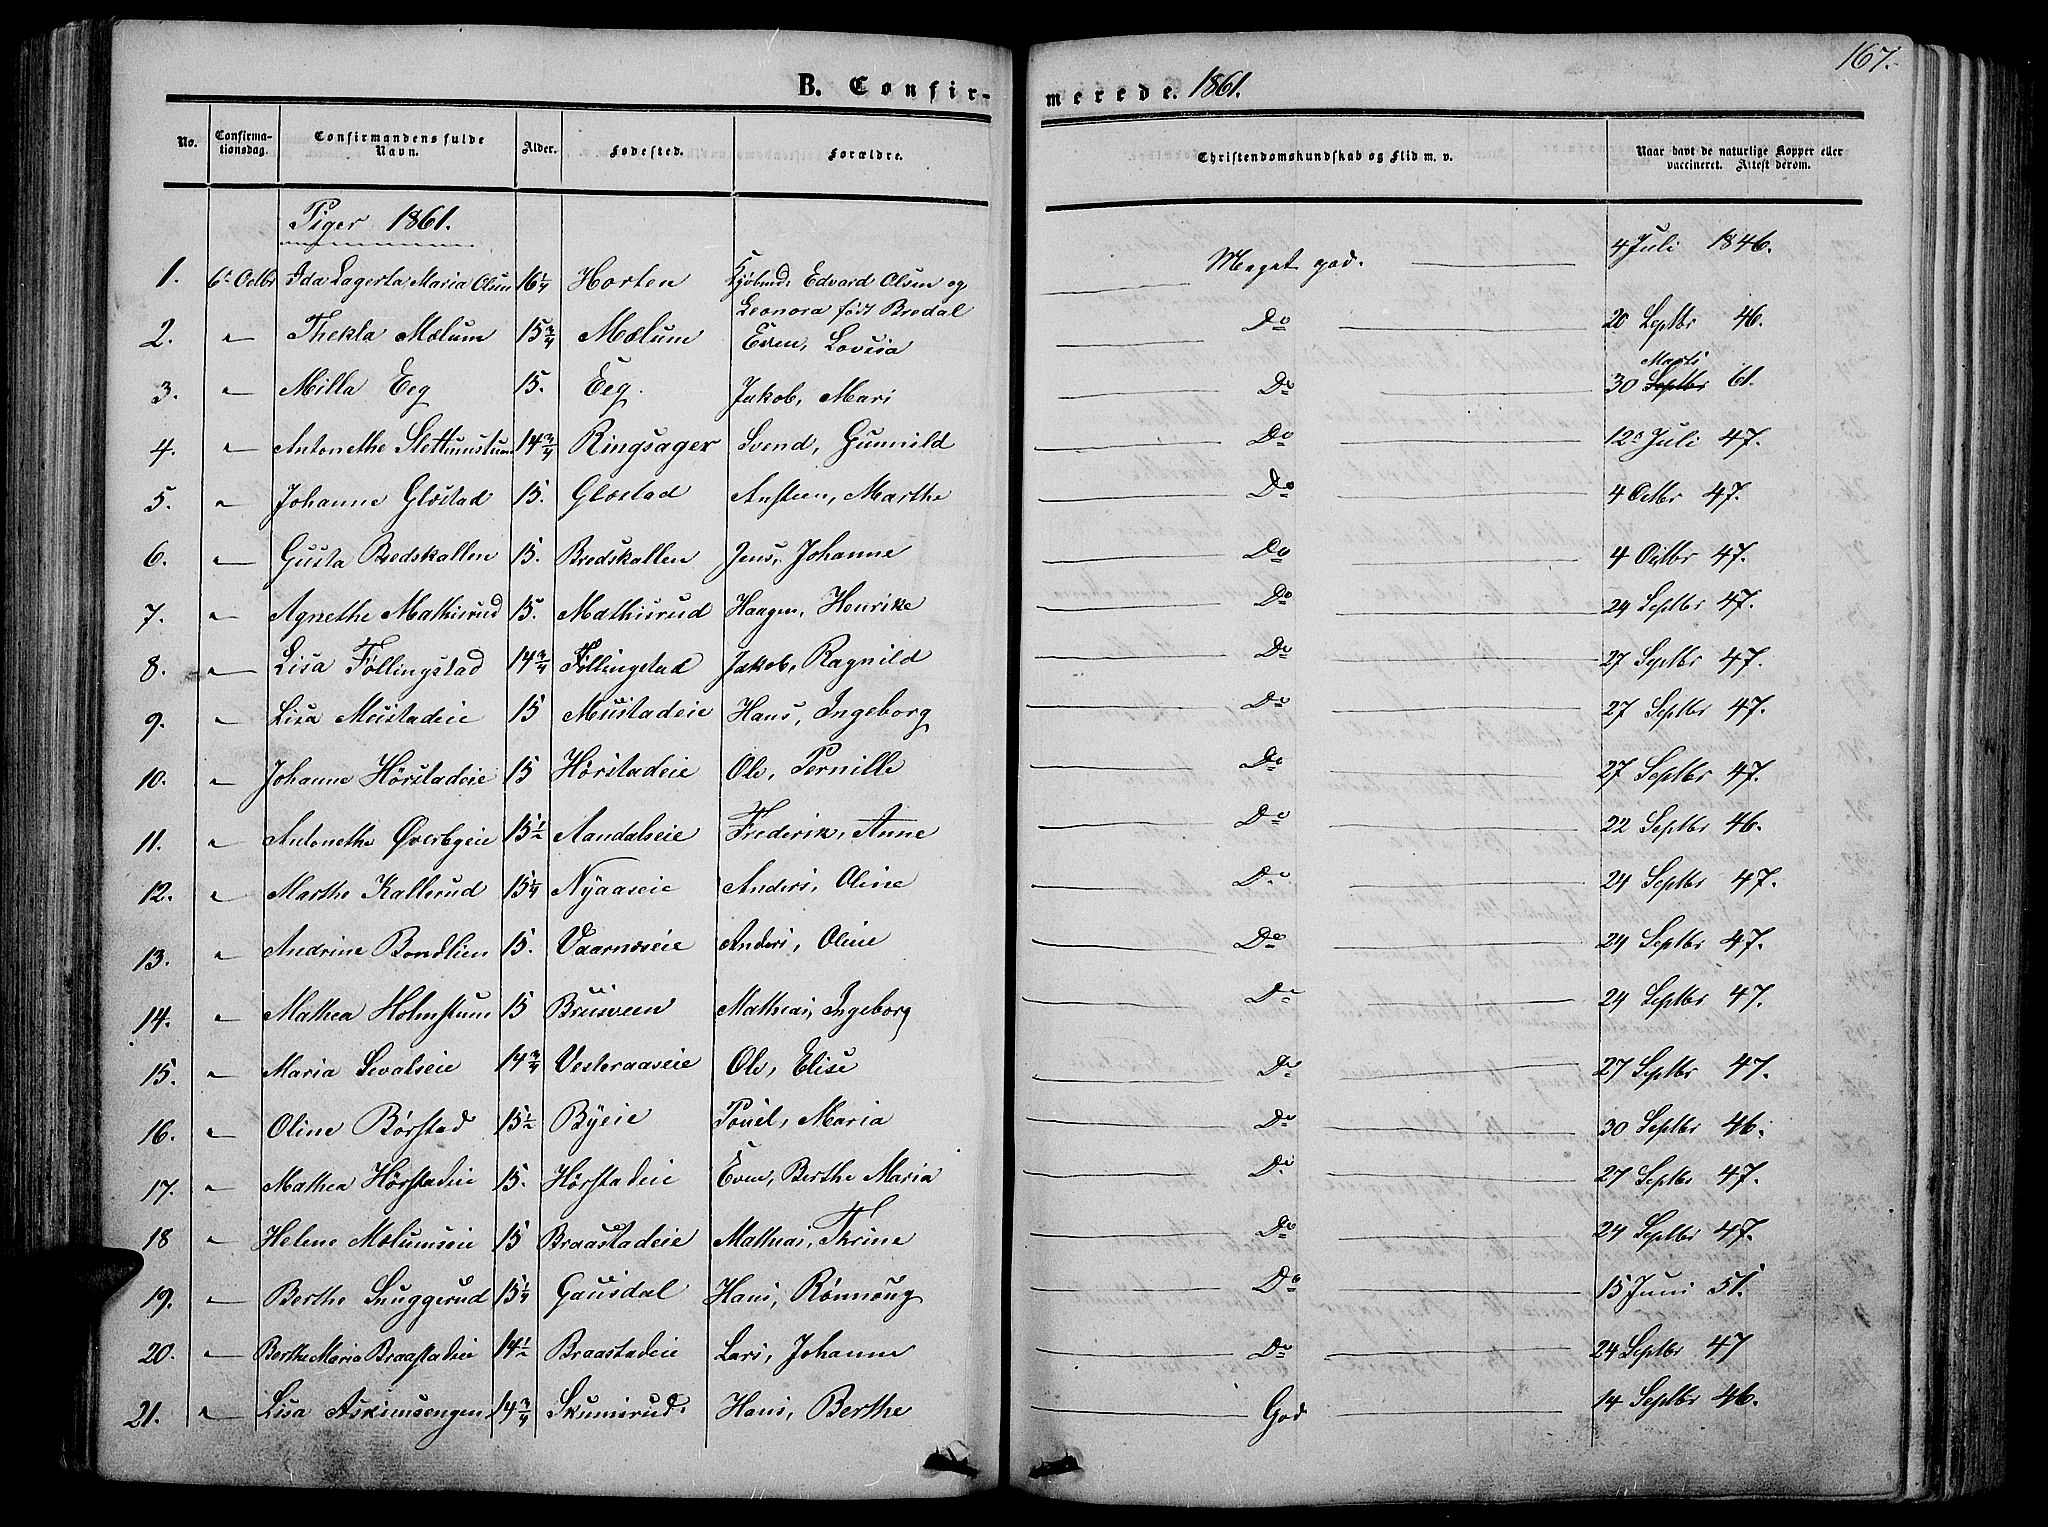 167.
B. Confirmerede. 1861.
No. Confirmationsdag. Confirmandens fulde Navn. Alder. Fødested. Forældre. Christendomskundskab og Flid m. v. Naar havt de naturlige Kopper eller vaccineret. Attest derom.
Piger 1861.
1. 6te Octbr Ida Lagerta Maria Olsen 16 1/4 Horten Kjøbmd. Edvard Olsen og Leonora født Bredal Meget god. 4 Juli 1846.
2. " Thekla Mælum 15 3/4 Mælum Even, Lovisa Do 20 Septbr 46.
3. " Milla Eeg 15. Eeg. Jakob, Mari Do 30 Septbr Marts 61.
4. " Antonethe Slettunstuen 14 3/4 Ringsager Svend, Gunnild Do 12 Juli 47.
5. " Johanne Gløstad 15. Gløstad Ansteen, Marthe Do 4 Octbr 47.
6. " Gusta Bredskallen 15. Bredskallen Jens, Johanne Do 4 Octbr 47.
7. " Agnethe Mathisrud 15. Mathisrud Haagen, Henrike Do 24 Septbr 47.
8. " Lisa Føllingstad 14 3/4 Føllingstad Jakob, Ragnild Do 27 Septbr 47.
9. " Lisa Mustadeie 15 Mustadeie Hans, Ingeborg Do 27 Septbr 47.
10. " Johanne Hørstadeie 15 Hørstadeie Ole, Pernille Do 27 Septbr 47.
11. " Antonethe Øverbyeie 15 1/2 Aandalseie Frederik, Anne Do 22 Septbr 46.
12. " Marthe Kallerud 15 1/4 Nyaaseie Anders, Oline Do 24 Septbr 47.
13. " Andrine Bondlien 15. Vaarnæseie Anders, Oline Do 24 Septbr 47.
14. " Mathea Holmstuen 15 Brusveen Mathias, Ingeborg Do 24 Septbr 47.
15. " Maria Sevalseie 14 3/4 Vesteraaseie Ole, Elise Do 27 Septbr 47.
16. " Oline Børstad 15 1/2 Byeie Pouel, Maria Do 30 Septbr 46.
17. " Mathea Hørstadeie 15. Hørstadeie Even, Berthe Maria Do 27 Septbr 47.
18 " Helene Mælumseie 15 Braastadeie Mathias, Thrine Do 24 Septbr 47.
19. " Berthe Snuggerud 15 1/4 Gausdal Hans, Rønnoug Do 15 Juni 51.
20. " Berthe Maria Braastadeie 14 1/2 Braastadeie Lars, Johanne Do 24 Septbr 47
21. " Lisa Askimsengen 14 3/4 Skumsrud. Hans, Berthe God 14 Septbr 46.